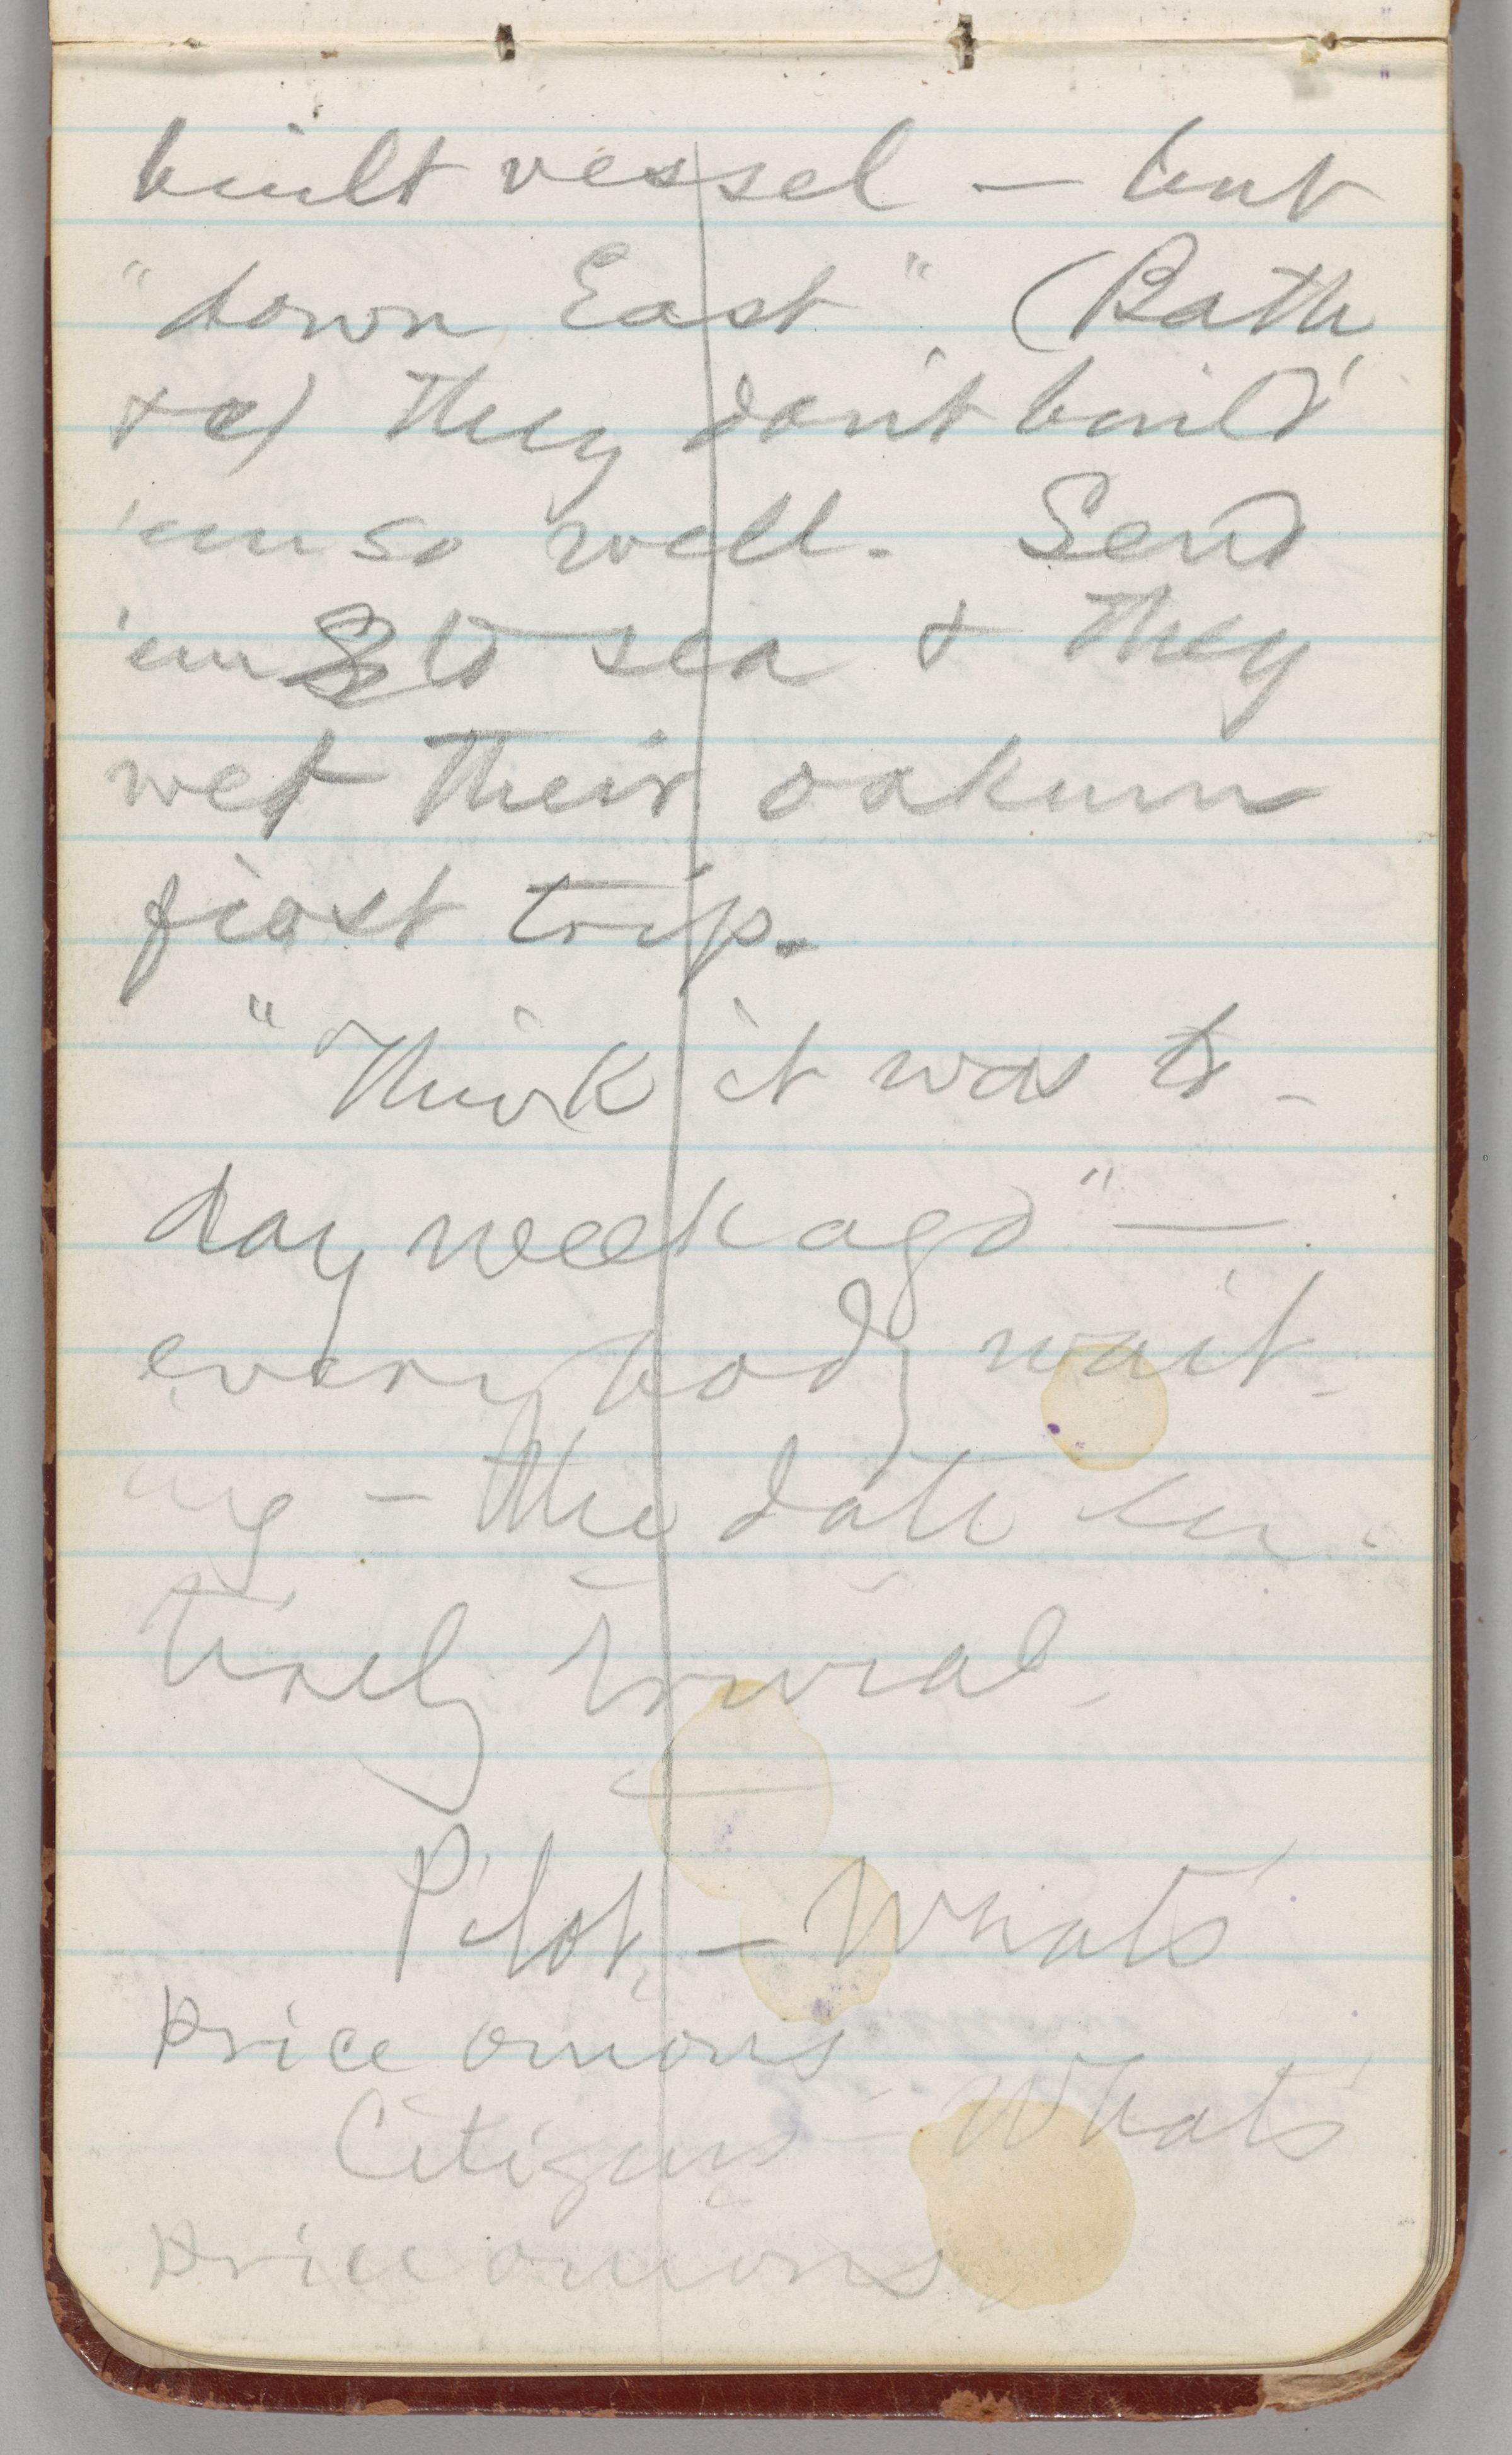 built vessel — but
"down East" (Bath
&c) they don't build
'em so well. Send
'em to sea & they
wet their oakum
first trip.
"Think it was to-
day week ago" —
every body wait-
ing — the date en-
tirely trivial.
Pilot, — What's
price onions
Citizens — What's
price onions